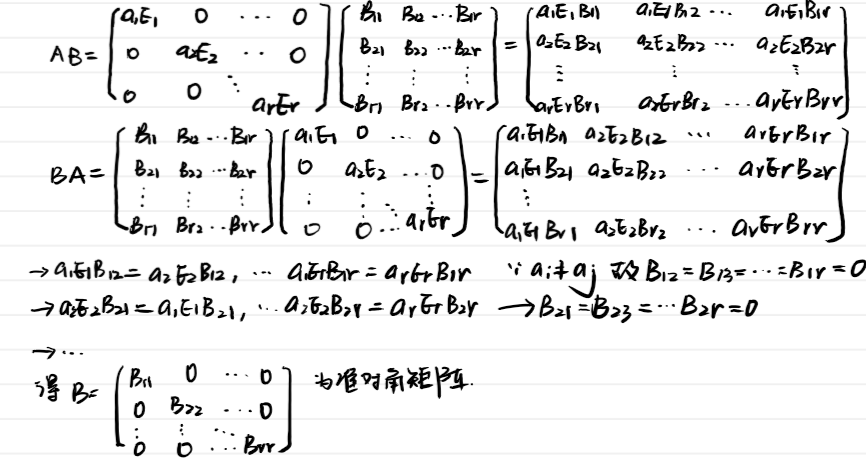 AB= ( a₁E₁ 0 ⋯ 0 ; 0 a₂E₂ ⋯ 0 ; 0 0 ⋱ aᵣEᵣ ) ( B₁₁ B₁₂ ⋯ B₁ᵣ ; B₂₁ B₂₂ ⋯ B₂ᵣ ; ⋮ ⋮ ⋮ ; Bᵣ₁ Bᵣ₂ ⋯ Bᵣᵣ ) = ( a₁E₁B₁₁ a₁E₁B₁₂ ⋯ a₁E₁B₁ᵣ ; a₂E₂B₂₁ a₂E₂B₂₂ ⋯ a₂E₂B₂ᵣ ; ⋮ ⋮ ⋮ ; aᵣEᵣBᵣ₁ aᵣEᵣBᵣ₂ ⋯ aᵣEᵣBᵣᵣ )
BA= ( B₁₁ B₁₂ ⋯ B₁ᵣ ; B₂₁ B₂₂ ⋯ B₂ᵣ ; ⋮ ⋮ ⋮ ; Bᵣ₁ Bᵣ₂ ⋯ Bᵣᵣ ) ( a₁E₁ 0 ⋯ 0 ; 0 a₂E₂ ⋯ 0 ; ⋮ ⋮ ⋱ ⋮ ; 0 0 ⋯ aᵣEᵣ ) = ( a₁E₁B₁₁ a₂E₂B₁₂ ⋯ aᵣEᵣB₁ᵣ ; a₁E₁B₂₁ a₂E₂B₂₂ ⋯ aᵣEᵣB₂ᵣ ; ⋮ ; a₁E₁Bᵣ₁ a₂E₂Bᵣ₂ ⋯ aᵣEᵣBᵣᵣ )
→a₁E₁B₁₂=a₂E₂B₁₂, ⋯ a₁E₁B₁ᵣ=aᵣEᵣB₁ᵣ ∵aᵢ≠aⱼ 故B₁₂=B₁₃=⋯=B₁ᵣ=0
→a₂E₂B₂₁=a₁E₁B₂₁, ⋯a₂E₂B₂ᵣ=aᵣEᵣB₂ᵣ →B₂₁=B₂₃=⋯B₂ᵣ=0
→⋯
得B= ( B₁₁ 0 ⋯ 0 ; 0 B₂₂ ⋯ 0 ; ⋮ ⋮ ⋱ ; 0 0 ⋯ Bᵣᵣ ) 为准对角矩阵.